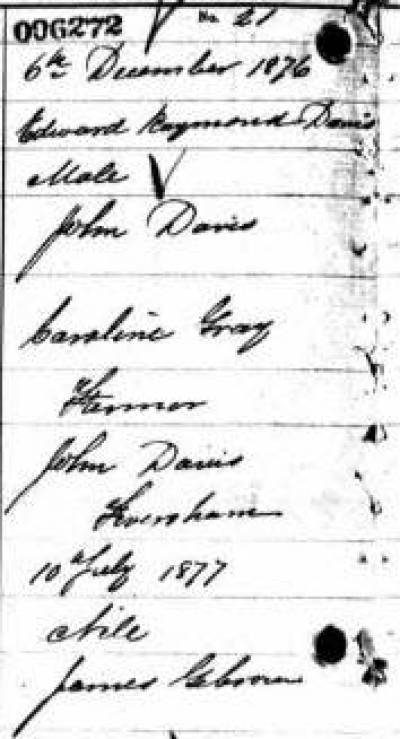 006272 No. 21
6th December 1876
Edward Raymond Davis
Male
John Davis
Caroline Gray
Farmer
John Davis
10th July 1877
Nile
James